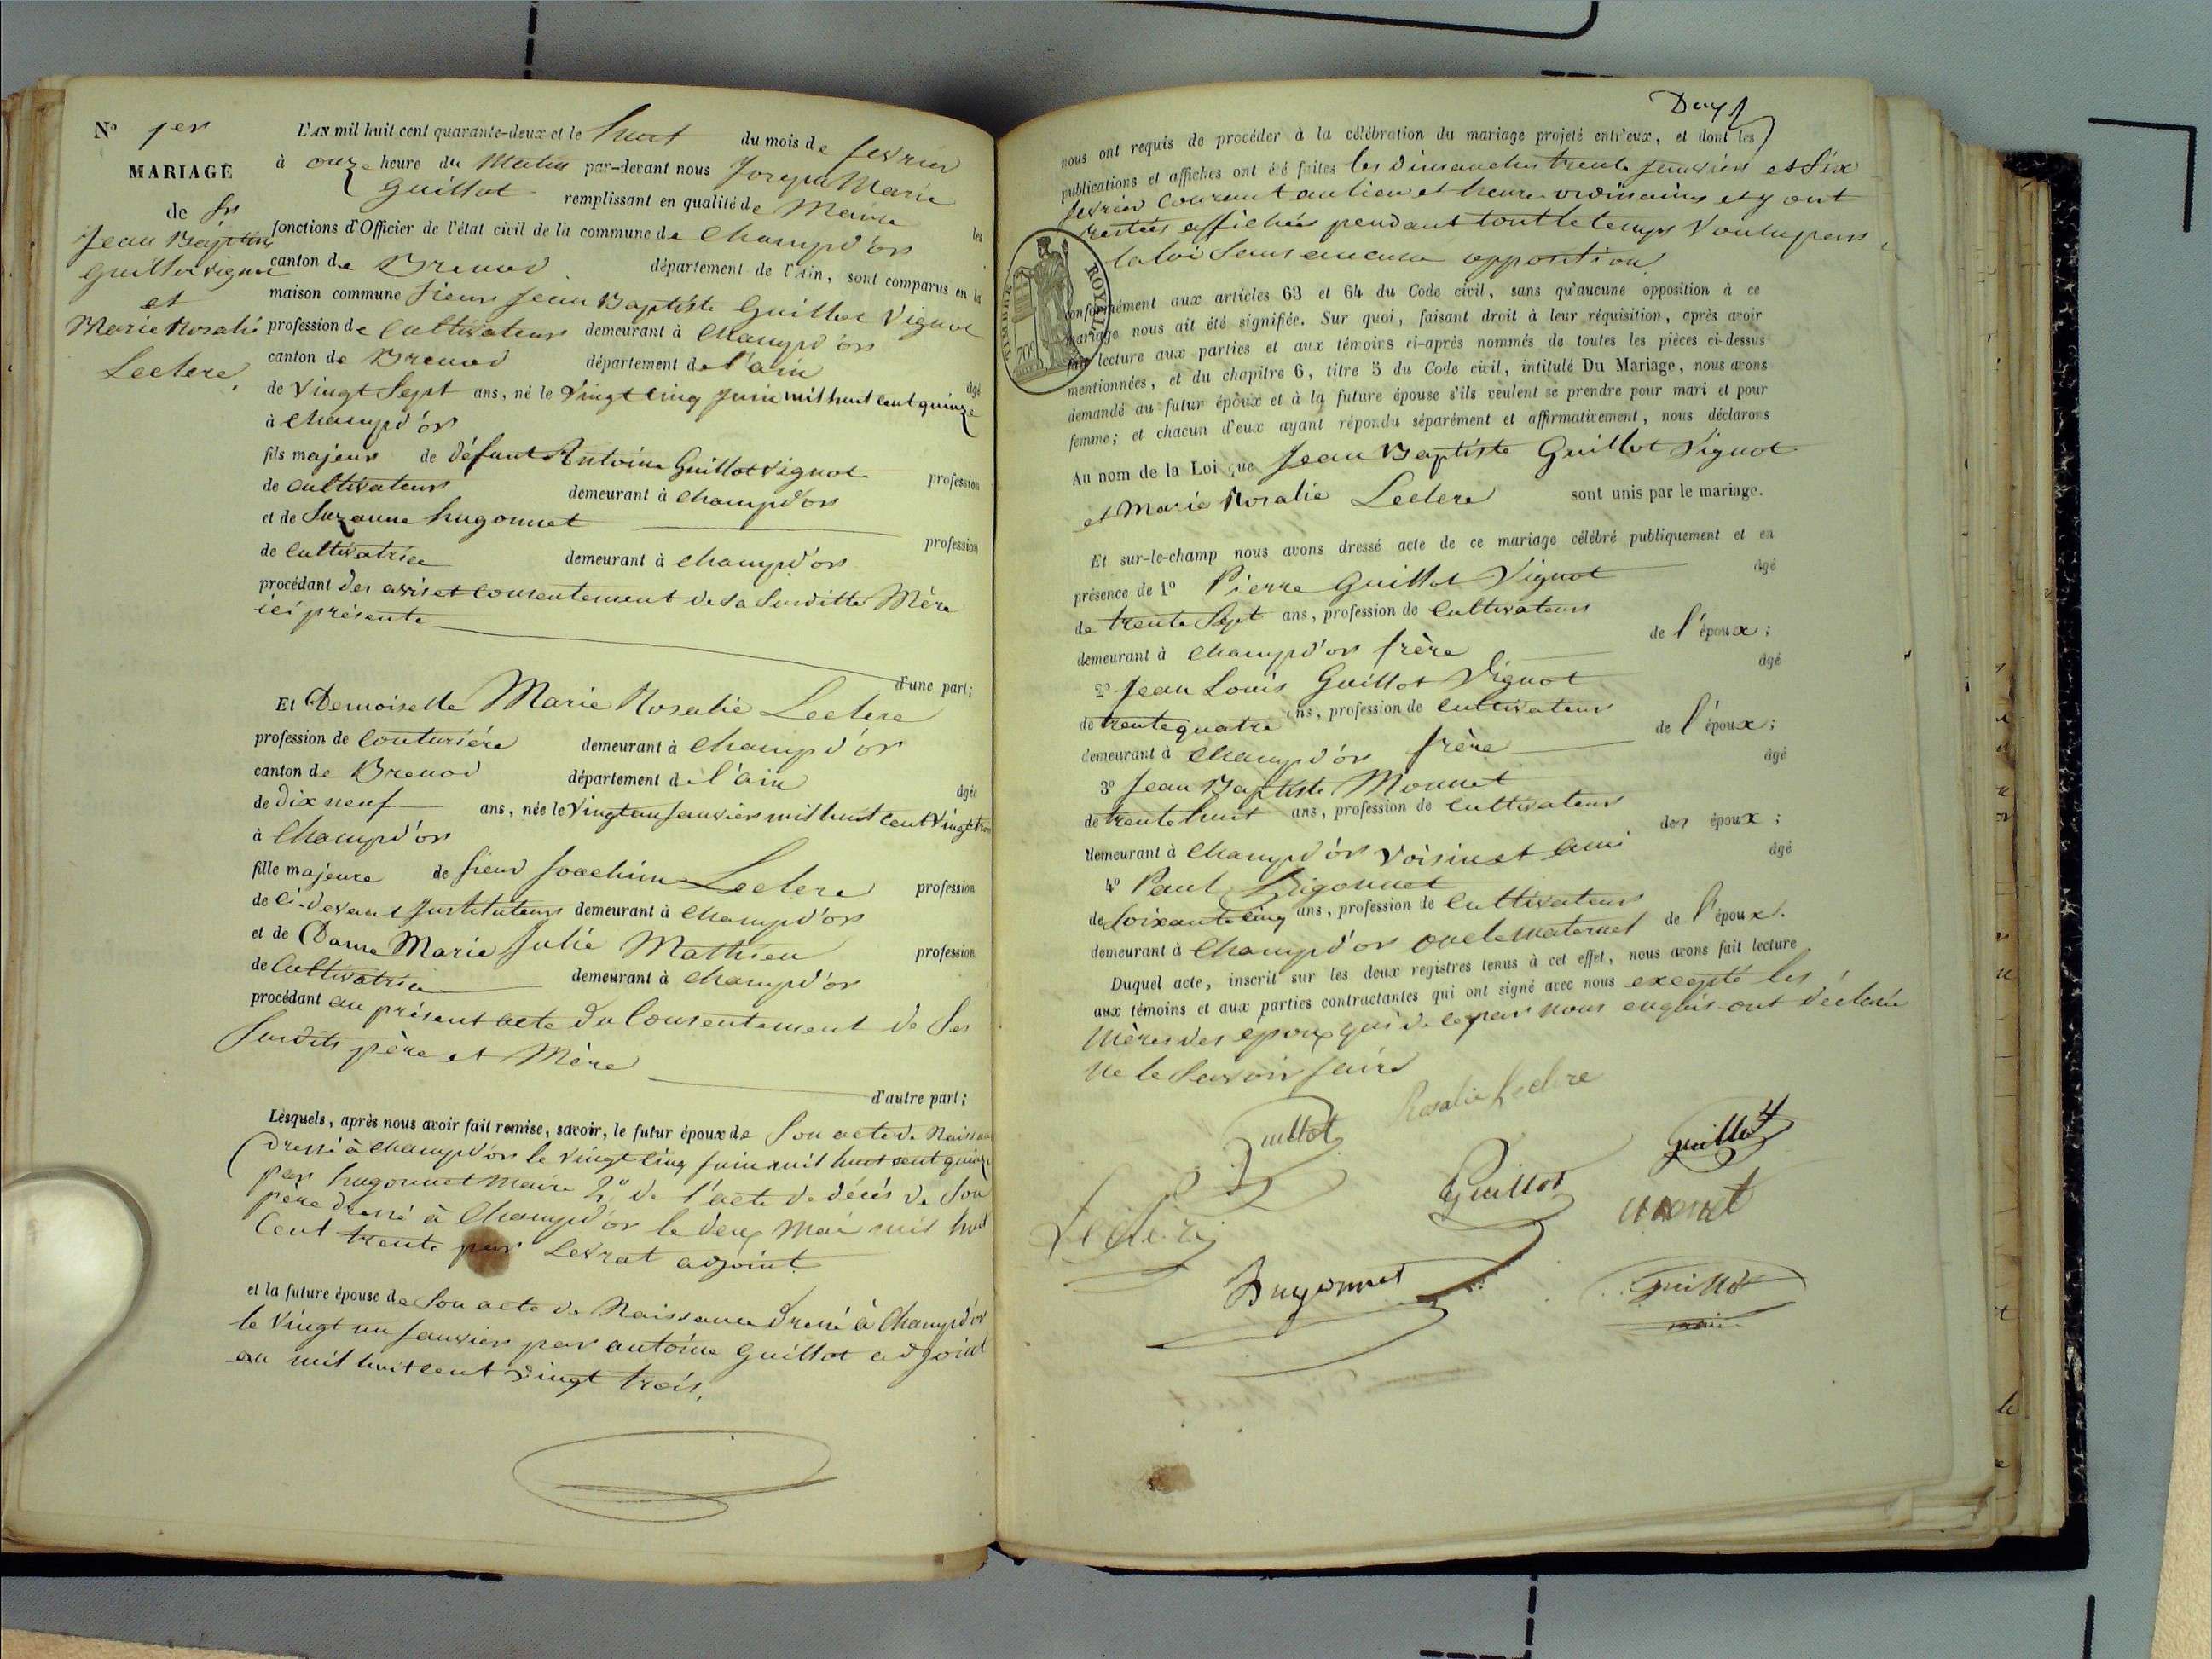 N° 1er
MARIAGE
de Sr
Jean Baptiste
Guillot Vignot
et
Marie Rosalie
Leclerc.
L'AN mil huit cent quarante-deux et le huit du mois de fevrier
à onze heure du Matin par-devant nous Joseph Marie
Guillot remplissant en qualité de Maire les
fonctions d'Officier de l'état civil de la commune de Champd'or
canton de Brenod département de l'Ain, sont comparus en la
maison commune sieur Jean Baptiste Guillot Vignot
profession de Cultivateur demeurant à Champd'or
canton de Brenod département de l'ain
âgé
de Vingt Sept ans, né le Vingt cinq Juin mil huit cent quinze
à Champd'or
fils majeur de défunt Antoine Guillot Vignot profession
de cultivateur demeurant à Champd'or
et de Suzanne hugonnet profession
de Cultivatrice demeurant à Champd'or
procédant des avis et consentement de sa susditte Mère
ici présente
d'une part;
Et Demoiselle Marie Rosalie Leclerc
profession de Couturière demeurant à Champd'or
canton de Brenod département de l'ain
âgée
de dix neuf ans, née le Vingt un Janvier mil huit cent Vingt trois
à Champd'or
fille majeure de sieur Joachim Leclerc profession
de Ci-devant Instituteur demeurant à Champd'or
et de Dame Marie Julie Mathieu profession
de Cultivatrice demeurant à Champd'or
procédant au présent acte du Consentement de Ses
Susdits père et Mère
d'autre part;
Lesquels, après nous avoir fait remise, savoir, le futur époux de Son acte de Naissance
dressé à Champd'or le Vingt cinq Juin mil huit cent quinze
par hugonnet Maire 2° de l'acte de décès de Son
père dressé à Champd'or le deux Mai mil huit
Cent trente par Levrat adjoint
et la future épouse de Son acte de Naissance dressé à Champd'or
le Vingt un Janvier par antoine Guillot adjoint
en mil huit cent vingt trois.
nous ont requis de procéder à la célébration du mariage projeté entr'eux, et dont les
publications et affiches ont été faites les dimanches trente Janvier et Six
fevrier Courant au lieu et heure ordinaires et y ont
restées affichées pendant tout le temps Voulu par
la loi Sans aucune opposition
TIMBRE ROYAL
conformément aux articles 63 et 64 du Code civil, sans qu'aucune opposition à ce
mariage nous ait été signifiée. Sur quoi, faisant droit à leur réquisition, après avoir
fait lecture aux parties et aux témoins ci-après nommés de toutes les pièces ci-dessus
mentionnées, et du chapitre 6, titre 5 du Code civil, intitulé Du Mariage, nous avons
demandé au futur époux et à la future épouse s'ils veulent se prendre pour mari et pour
femme; et chacun d'eux ayant répondu séparément et affirmativement, nous déclarons
Au nom de la Loi que Jean Baptiste Guillot Vignot
et Marie Rosalie Leclerc sont unis par le mariage.
Et sur-le-champ nous avons dressé acte de ce mariage célébré publiquement et en
présence de 1° Pierre Guillot Vignot âgé
de trente Sept ans, profession de Cultivateur
demeurant à Champd'or frère de l'époux;
2° Jean Louis Guillot Vignot âgé
de trente quatre ans, profession de Cultivateur
demeurant à Champd'or frère de l'époux;
3° Jean Baptiste Monnet âgé
de trente huit ans, profession de Cultivateur
demeurant à Champd'or Voisin et ami des époux;
4° Paul hugonnet âgé
de Soixante cinq ans, profession de Cultivateur
demeurant à Champd'or oncle maternel de l'époux.
Duquel acte, inscrit sur les deux registres tenus à cet effet, nous avons fait lecture
aux témoins et aux parties contractantes qui ont signé avec nous excepté les
Mères des époux qui de ce par nous enquis ont déclaré
ne le Savoir faire
Guillot Rosalie Leclerc
Guillot
Leclerc Guillot monet
hugonnet Guillot
maire